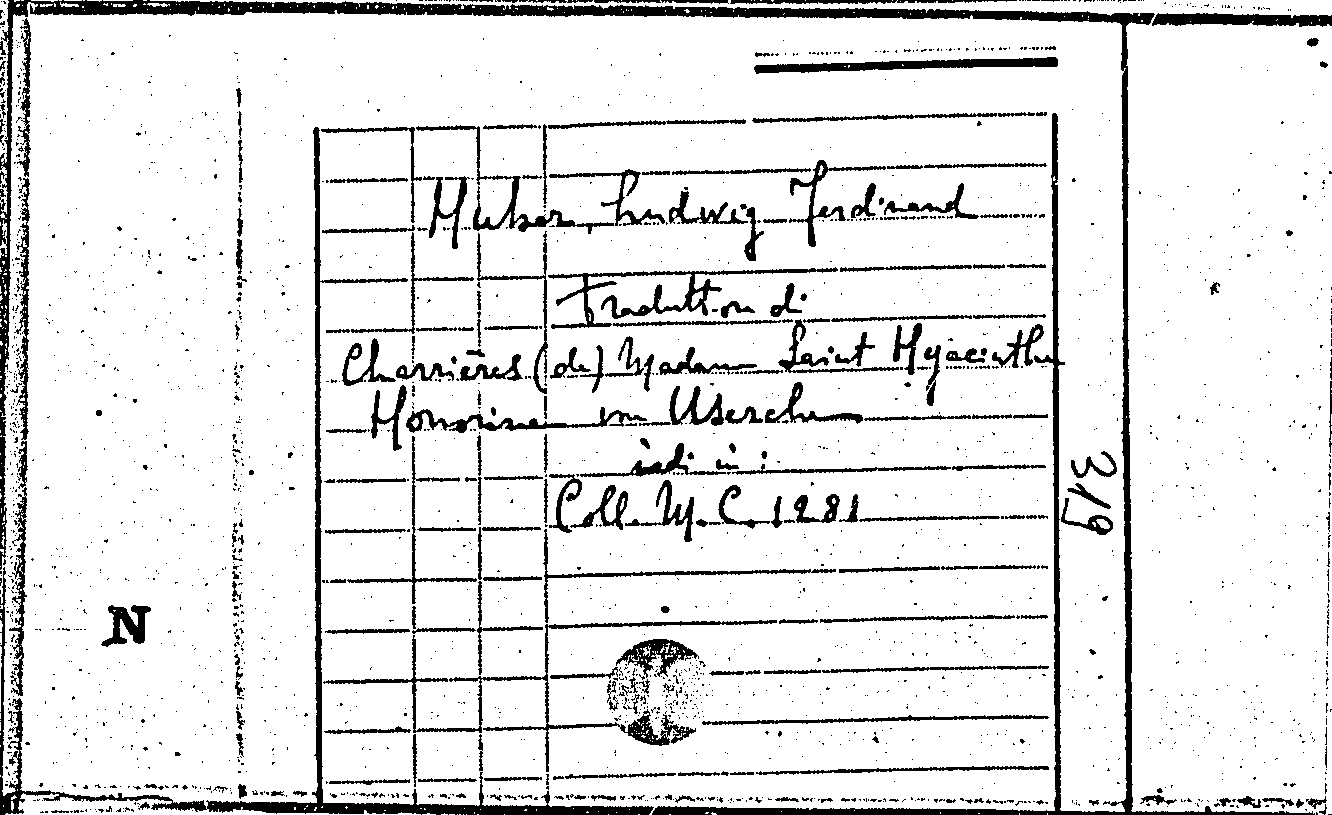 Huber, Ludwig Ferdinand
Traduttion di
Charrières (de) Madame Saint Hyacinthe
Honorine von Userche
vedi in :
Coll. M. C. 1281
319
N